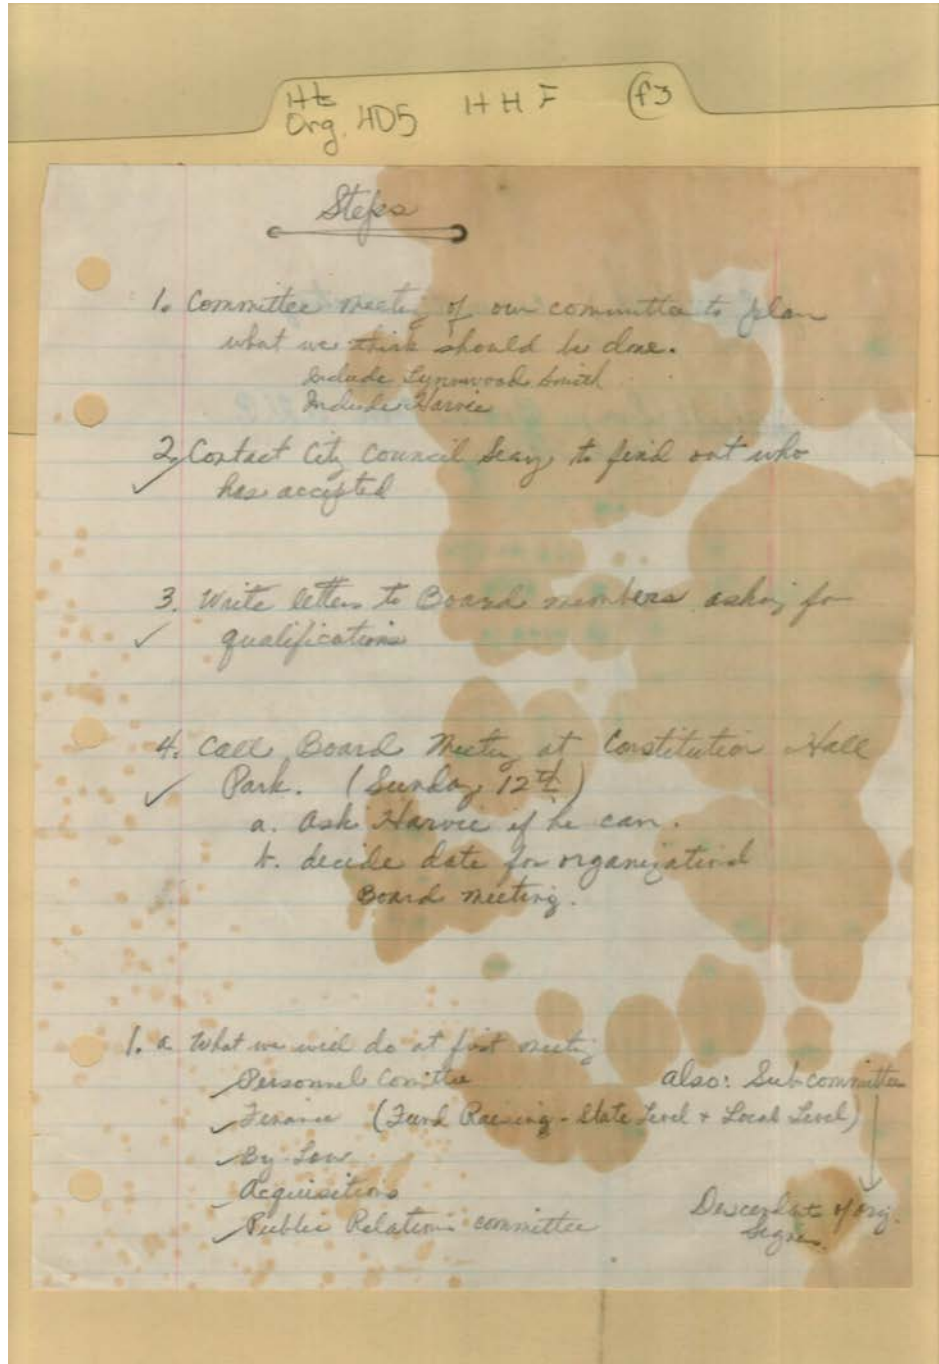 Hts
Org. 4D5 HHF f3
Steps
1. Committee meeting of our committee to plan
what we think should be done.
Include Lynnwood Smith
Include Harvie
2. Contact City Council Secry to find out who
has accepted
3. Write letters to Board members asking for
qualifications
4. Call Board Meeting at Constitution Hall
Park. (Sunday, 12th)
a. Ask Harvie if he can.
b. decide date for organizational
Board meeting.
1. a What we will do at first meeting
Personnel Comittee
also: Subcommittee
Finance (Fund Raising - State Level + Local Level)
By-Law
Acquisitions
Public Relations committee
Descendants of orig.